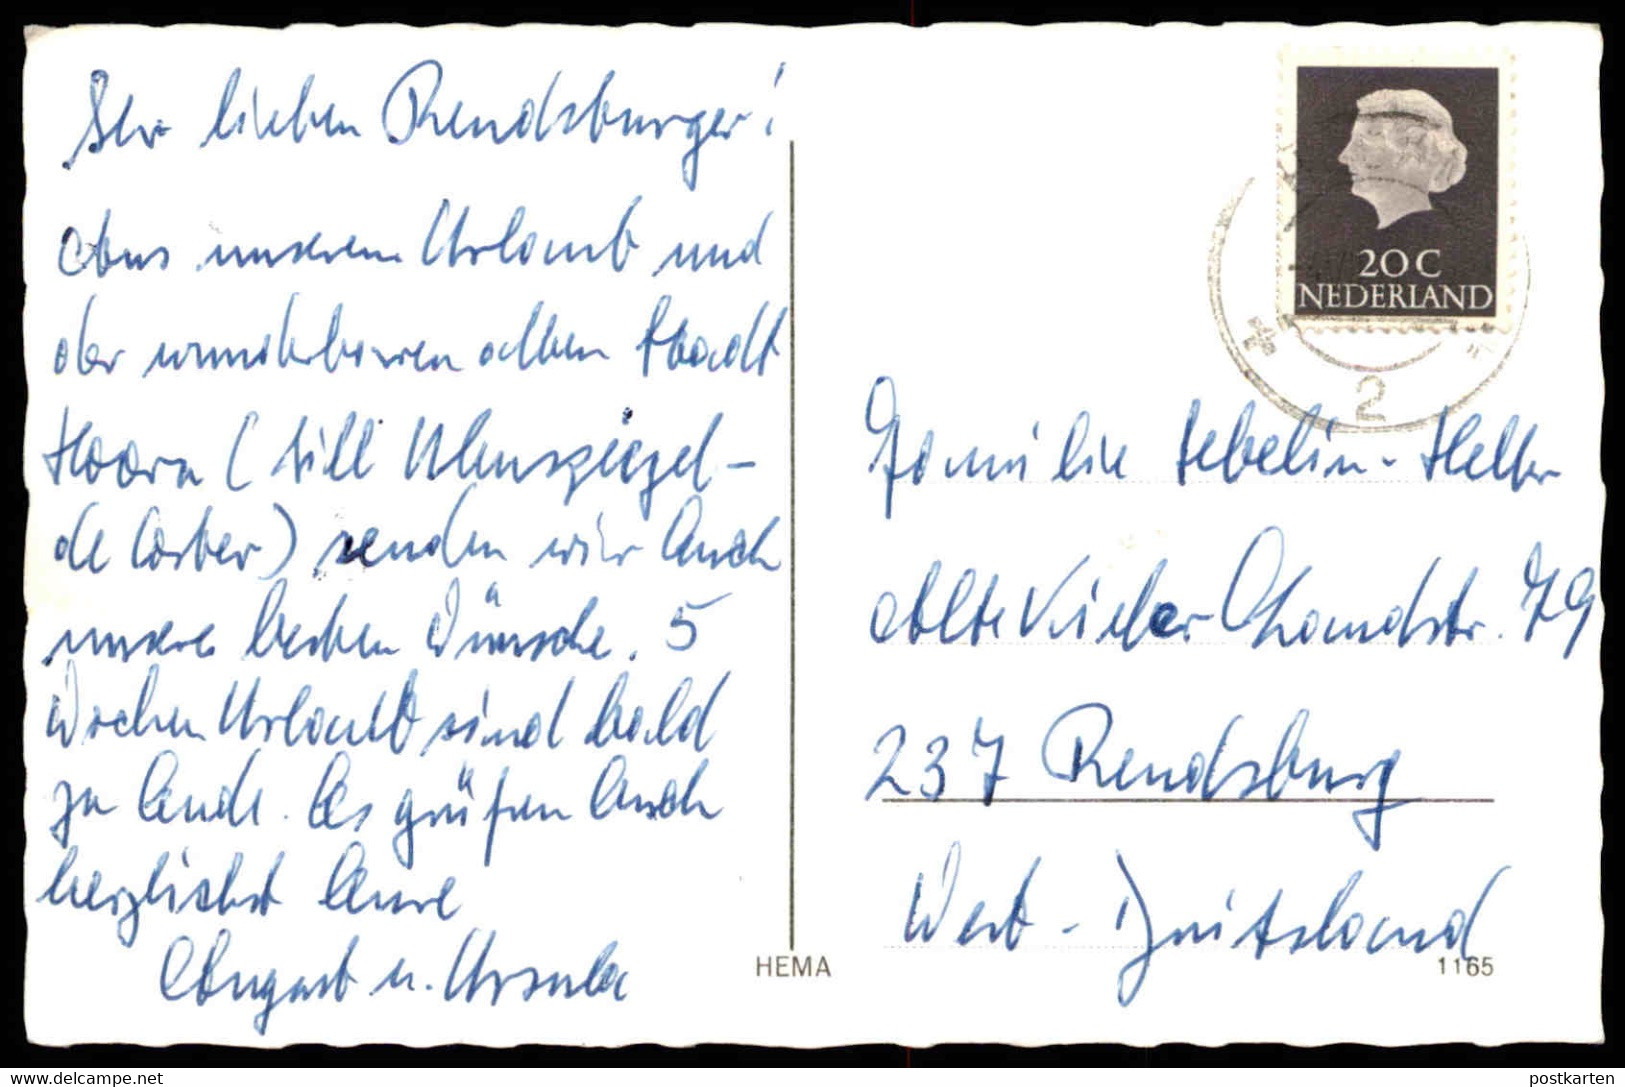 Ihr lieben Rendsburger!
Aus unserem Urlaub und
der wunderbaren alten Stadt
Hoorn (Till Ulenspiegel-
de Coster) senden wir Euch
unsere besten Wünsche. 5
Wochen Urlaub sind bald
zu Ende. Es grüßen Euch
herzlichst Eure
August u. Ursula
20 C
NEDERLAND
2
Familie Sebelin-Heller
Alte Kieler Landstr. 79
237 Rendsburg
West-Deutschland
HEMA
1165
postkarten